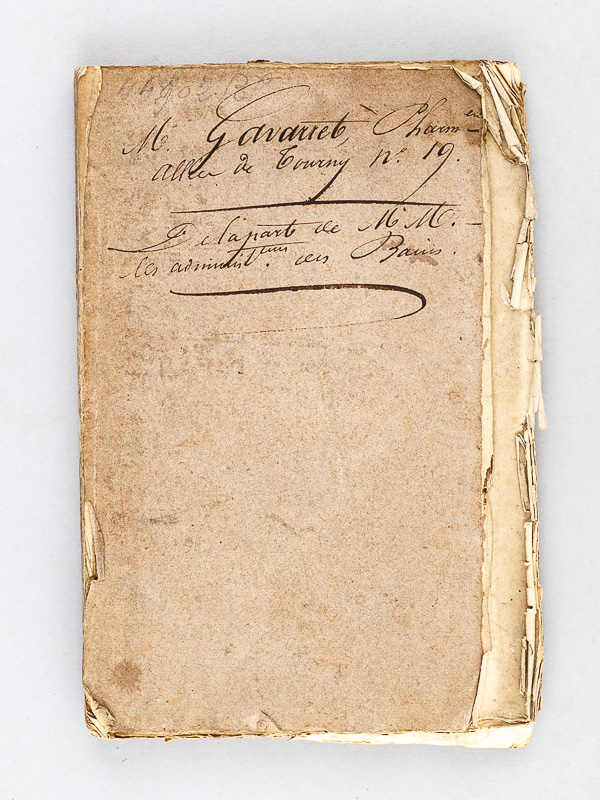 Mr. Gavarret, Pharmen
allée de Tourny n.° 19.
De la part de M.M.
les administ.teurs des Bains.